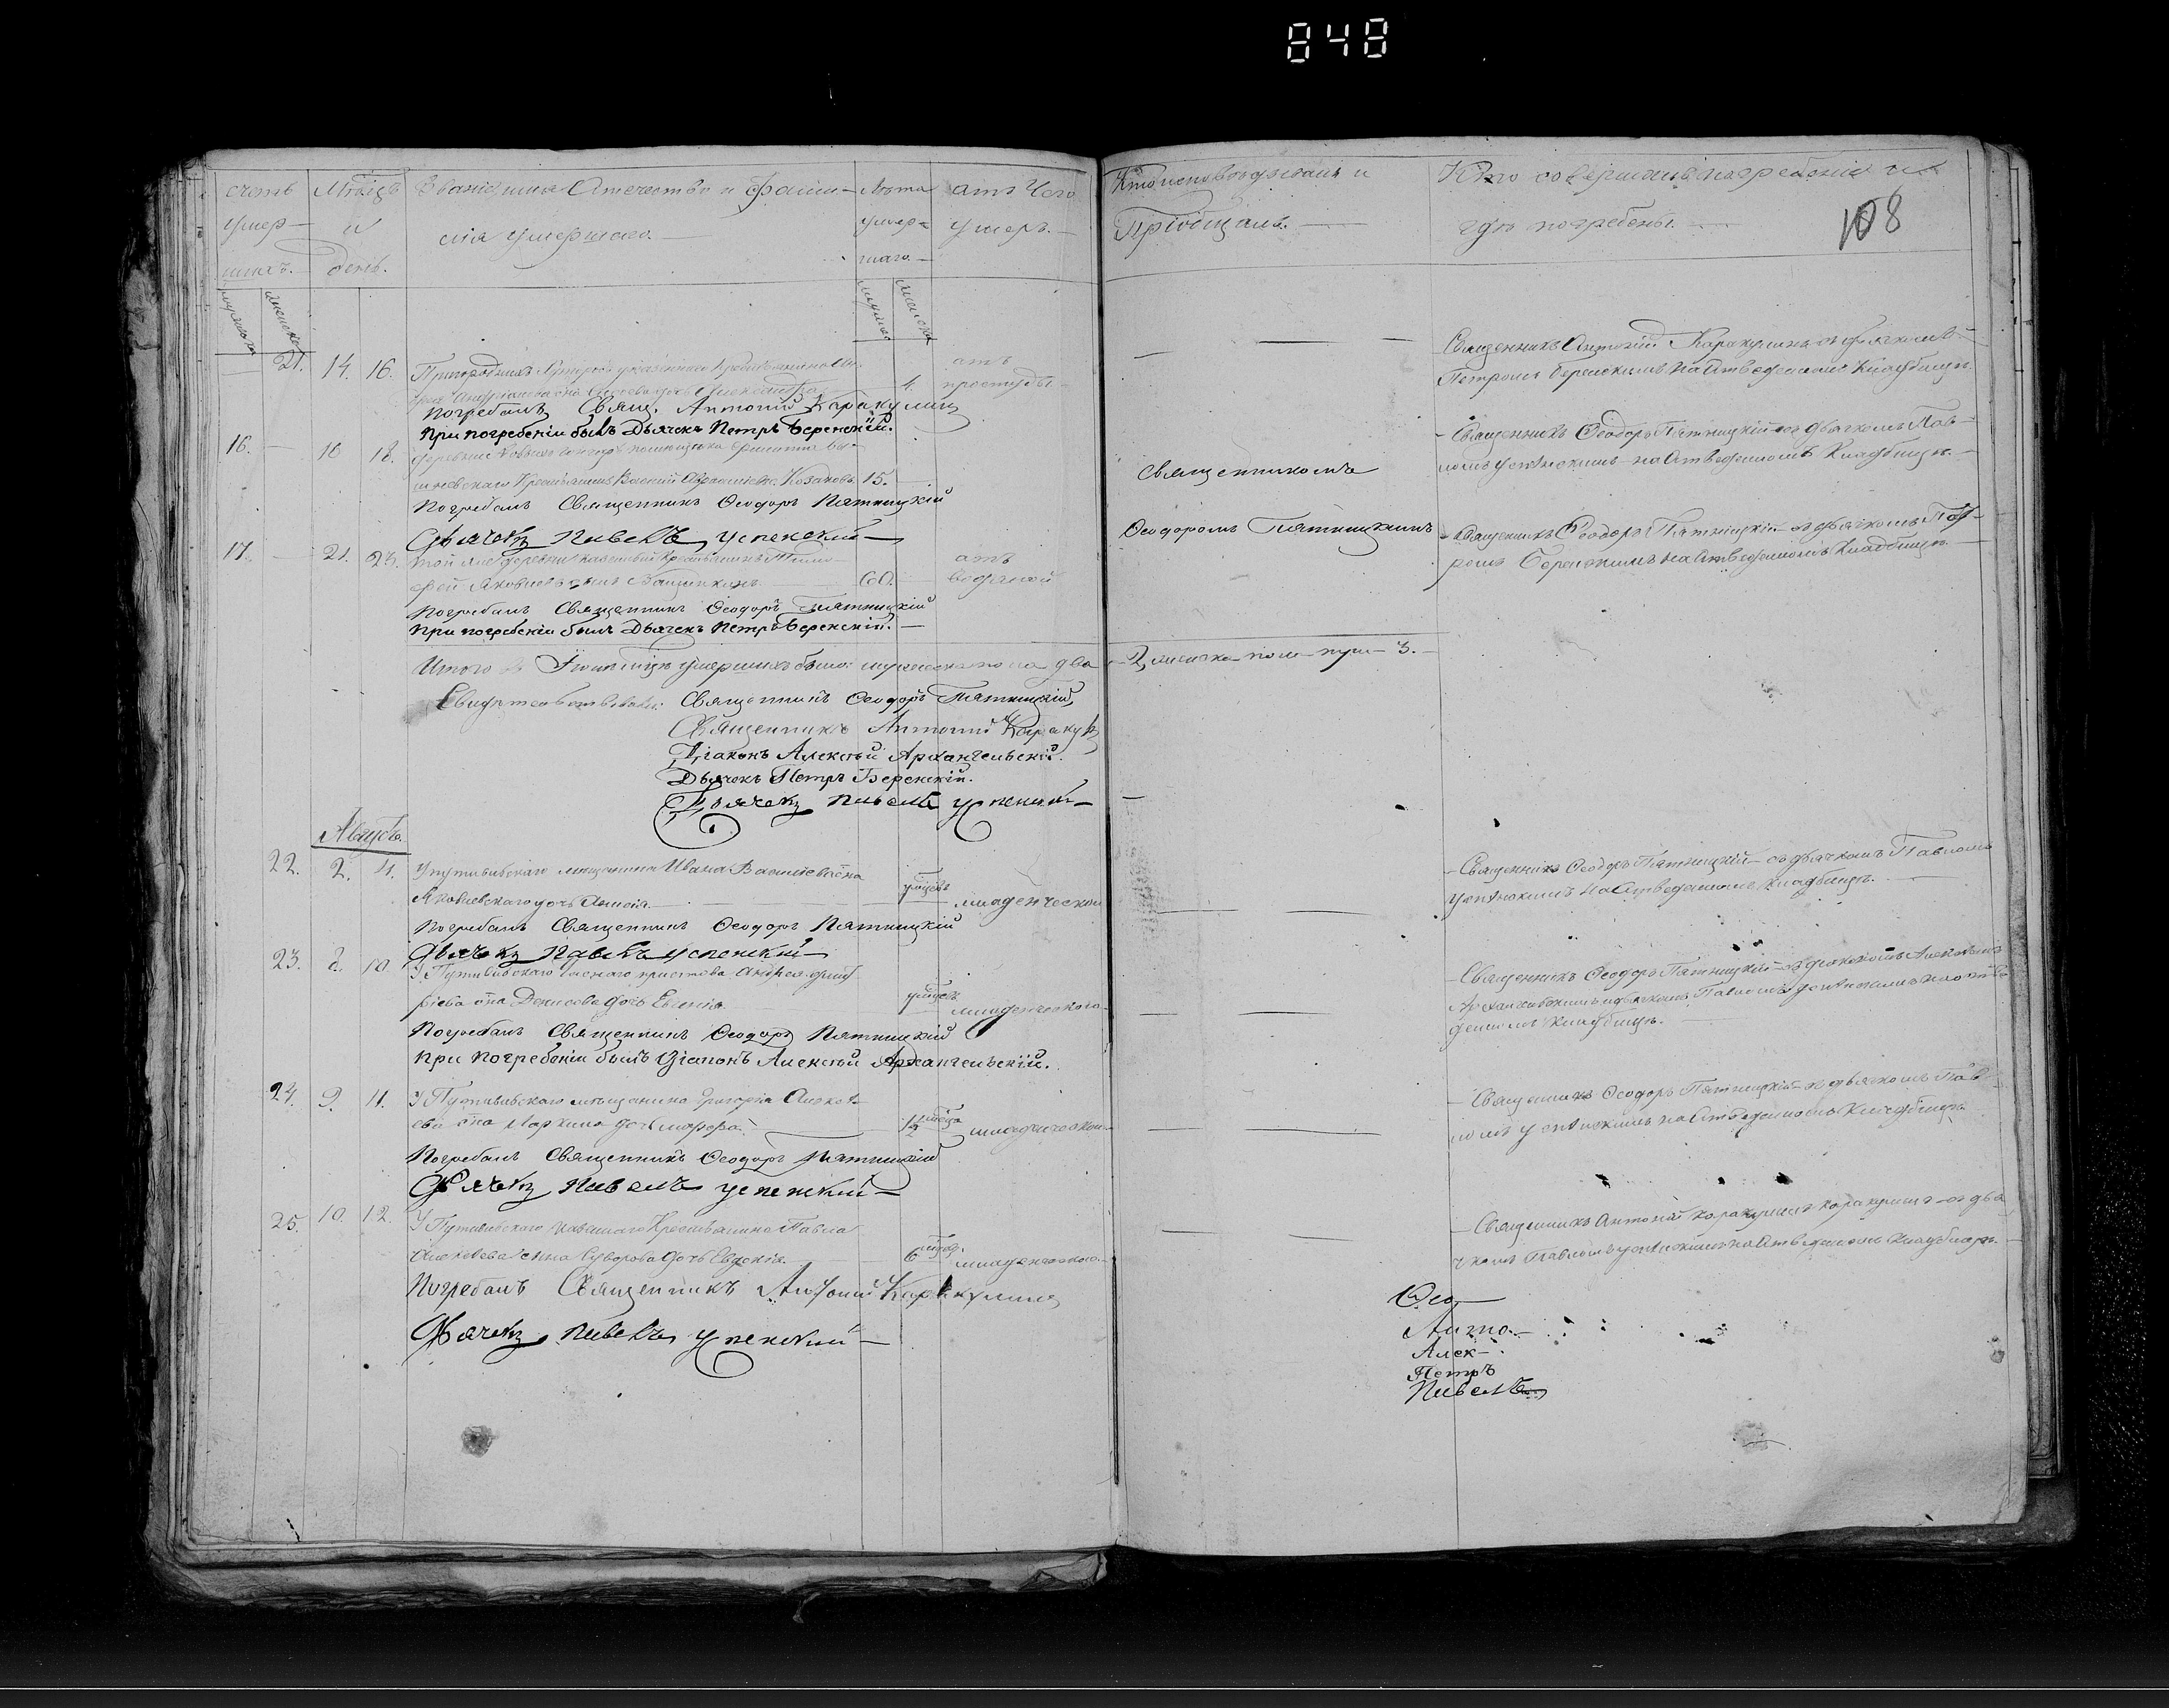 848
счетъ
умер-
шихъ.
Мѣсяцъ
и
день.
Званіе имя Отечество и Фами-
лія умершаго.
Лѣта
умер-
шаго
отъ Чего
умеръ.
Кто исповѣдывалъ и
Пріобщалъ.
Кто совершалъ погребеніе и
гдѣ погребены.
108
мужеска
женска
мужеска
женска
21. 14. 16.
дочь Александра 4.
отъ
простуды.
Священникъ Антоній Каракулинъ съ дьячкомъ
Петромъ Беренскимъ на Отведенномъ Кладбищѣ.
Погребалъ Свящ. Антоній Каракулинъ
При погребеніи былъ Дьячекъ Петръ Беренскій.
16. — 16 18.
Крестьянинъ Василій Козаковъ 15.
Священникомъ
Священникъ Ѳеодоръ Пятницкій съ дьячкомъ Пав-
ломъ Успенскимъ на Отведенномъ Кладбищѣ.
Погребалъ Священникъ Ѳеодоръ Пятницкій
Дьячекъ Павелъ Успенскій
17. — 21. 23.
той же деревни казенный крестьянинъ Тимо-
фей Яковлевъ сынъ 60.
отъ
водяной
Ѳеодоромъ Пятницкимъ
Священникъ Ѳеодоръ Пятницкій съ дьячкомъ Пет-
ромъ Беренскимъ на Отведенномъ Кладбищѣ.
Погребалъ Священникъ Ѳеодоръ Пятницкій
При погребеніи былъ Дьячекъ Петръ Беренскій.
Итого въ Іюлѣ мѣсяцѣ умершихъ было: мужеска пола два 2, женска пола три 3.
Свидѣтельствовали: Священникъ Ѳеодоръ Пятницкій
Священникъ Антоній Каракул
Діаконъ Алексѣй Архангельскій.
Дьячекъ Петръ Беренскій.
Дьячекъ Павелъ Успенскій
Августъ.
22. 2. 4. У путивльскаго мещанина Ивана Васильева сна
Яковлевскаго дочь Анисія
младенческой
Священникъ Ѳеодоръ Пятницкій съ дьячкомъ Павломъ
Успенскимъ на Отведенномъ Кладбищѣ.
Погребалъ Священникъ Ѳеодоръ Пятницкій
Дьячекъ Павелъ Успенскій
23. 8. 10. У Путивльскаго пристава Андрея Дмит
ріева сна Денисова дочь Евгенія
младенческого
Священникъ Ѳеодоръ Пятницкій съ діакономъ Алексѣемъ
Архангельскимъ и дьячкомъ Павломъ Успенскимъ на отве
денномъ Кладбищѣ.
Погребалъ Священникъ Ѳеодоръ Пятницкій
При погребеніи былъ Діаконъ Алексѣй Архангельскій.
24. 9. 11. У Путивльскаго мѣщанина Григорія Алексѣ-
ева сна Маркина дочь Марфа
младенческой
Священникъ Ѳеодоръ Пятницкій съ дьячкомъ Пав-
ломъ Успенскимъ на Отведенномъ Кладбищѣ
Погребалъ Священникъ Ѳеодоръ Пятницкій
Дьячекъ Павелъ Успенскій
25. 10. 12. У Путивльскаго казеннаго Крестьянина Павла
Алексѣева сына Суворова дочь Евдокія 6 мѣсяц.
младенческого
Священникъ Антоній Каракулинъ Каракулинъ съ дья
чкомъ Павломъ Успенскимъ на Отведенномъ Кладбищѣ
Погребалъ Священникъ Антоній Каракулинъ
Дьячекъ Павелъ Успенскій
Ѳео
Анто.
Алек
Петръ
Павелъ